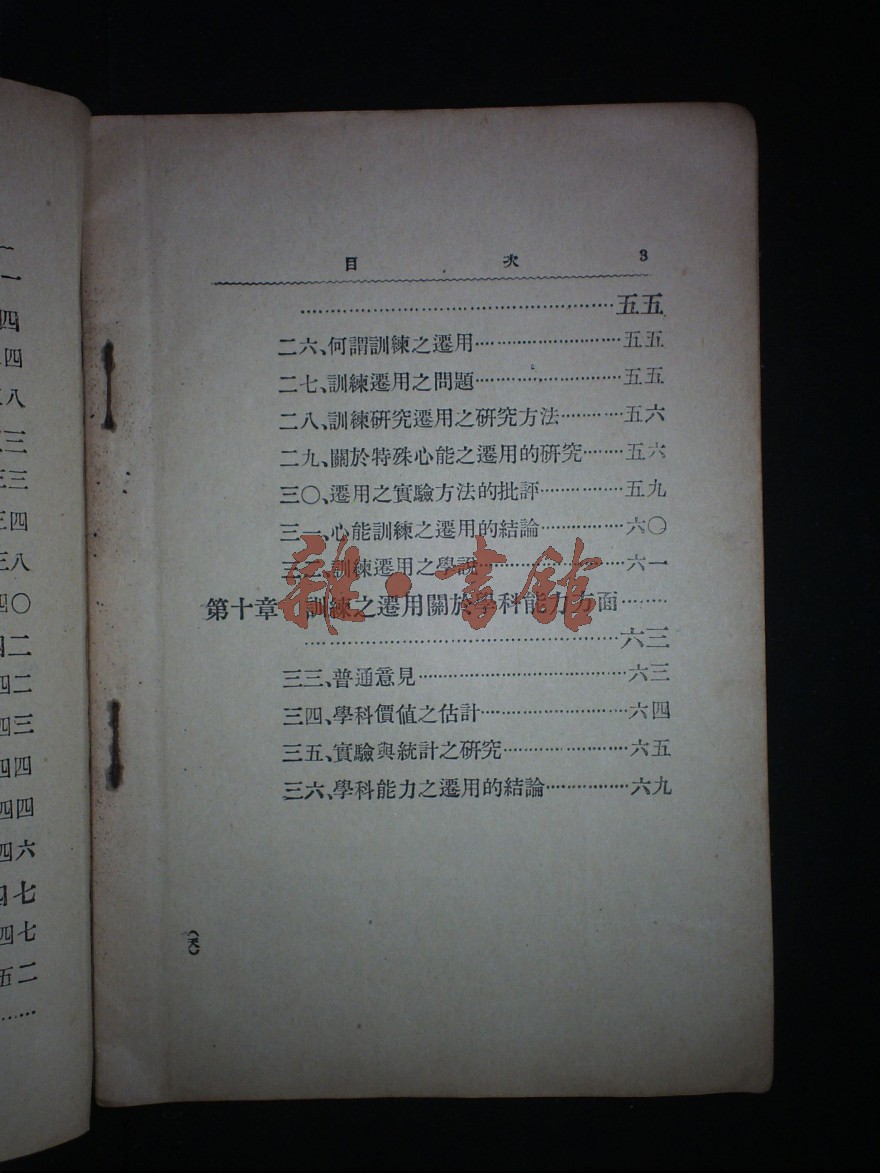 一
四
四
八
三
三
四
八
四〇
四二
四二
四三
四四
四四
四六
四七
四七
五二
……
目 次 3
……五五
二六、何謂訓練之遷用……五五
二七、訓練遷用之問題……五五
二八、訓練研究遷用之研究方法……五六
二九、關於特殊心能之遷用的研究……五六
三〇、遷用之實驗方法的批評……五九
三一、心能訓練之遷用的結論……六〇
三二、訓練遷用之學說……六一
第十章 訓練之遷用關於學科能力方面……
……六三
三三、普通意見……六三
三四、學科價值之估計……六四
三五、實驗與統計之研究……六五
三六、學科能力之遷用的結論……六九
雜·書館